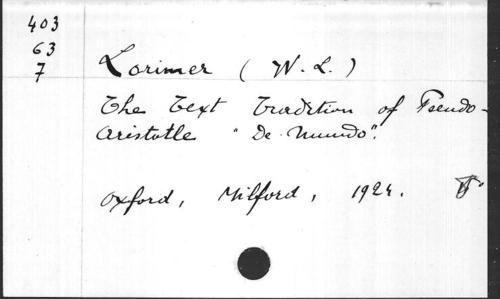 403
63
7
Lorimer (W. L.)
The Text Tradition of Pseudo-
Aristotle "De Mundo".
Oxford, Milford, 1924.